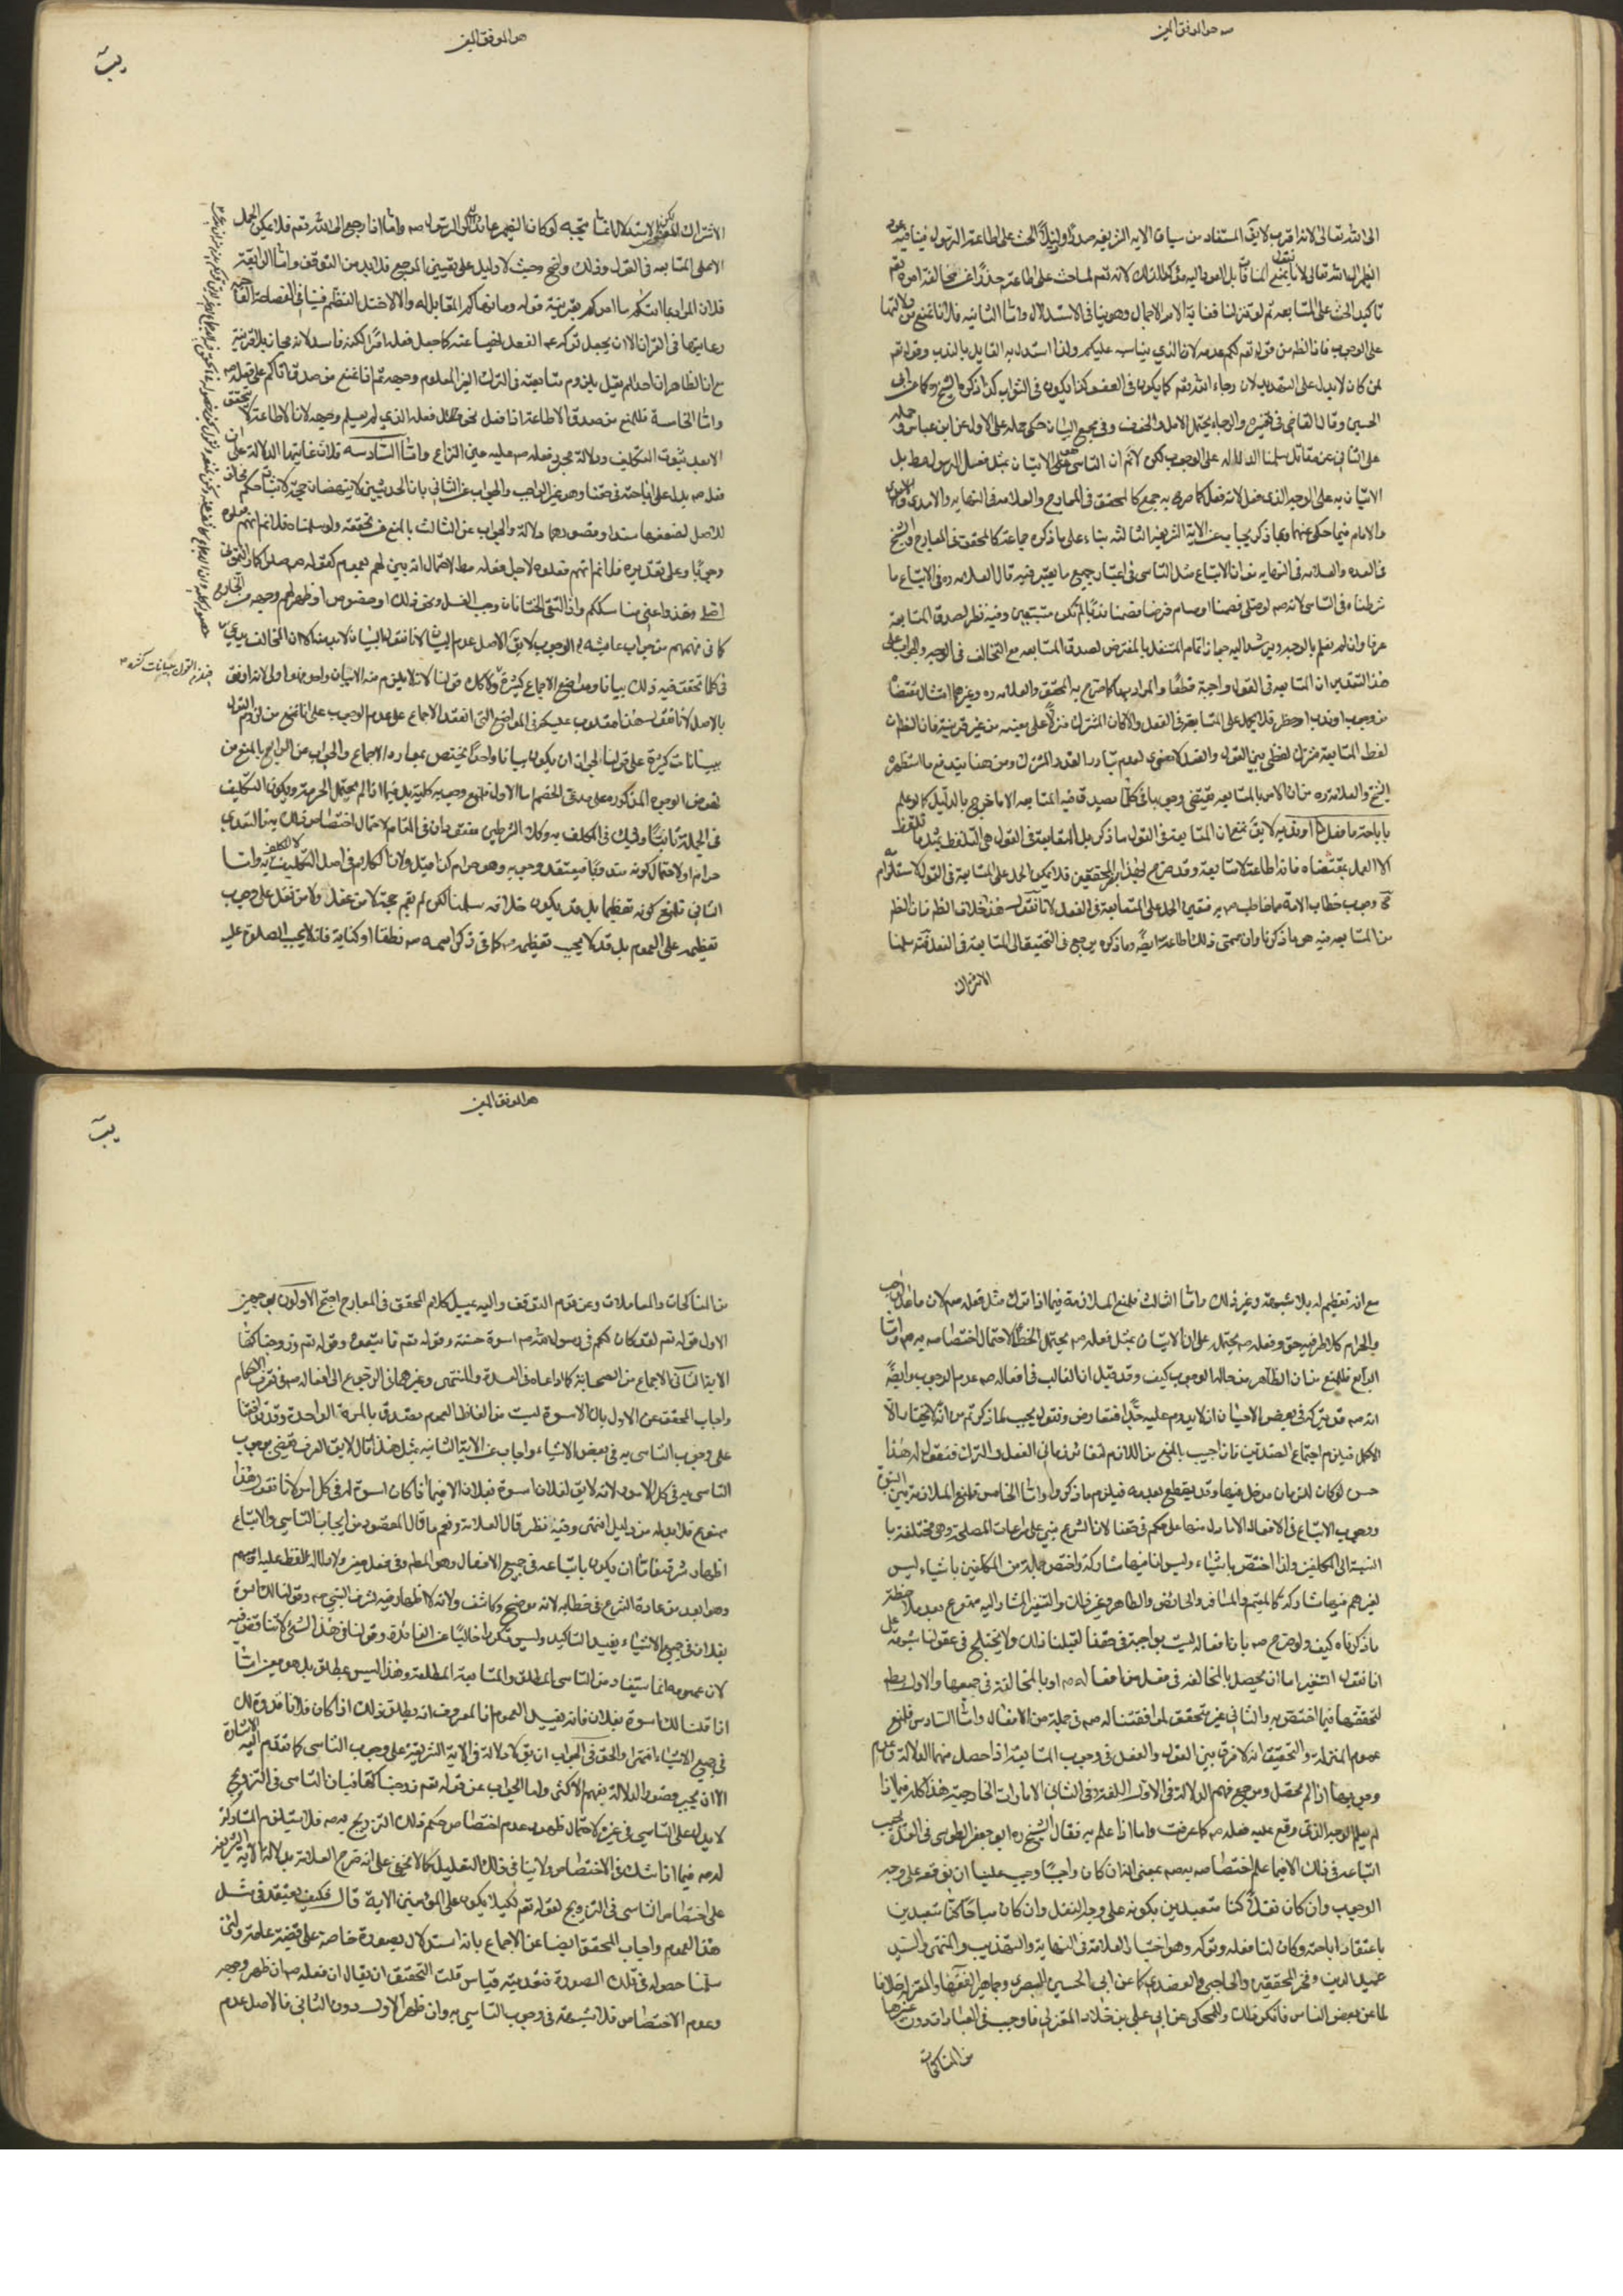 هو الموفق المعين
الى الله تعالى لانه اقرب لا يق المستفاد من سياق الاية الشريفة صدرًا وذيلًا الحث على اطاعة الرسول فينافيه عود
الضمير الى الله تعالى لانا نقول بمنع المنافات بل العود اليه مؤكد لذلك لانه تعم لما حث على اطاعته حذر عن مخالفة امره تعم
تاكيد الحث على المتابعة ثم لو تنزلنا فغاية الامر الاجمال وهو ينافى الاستدلال واما الثانيه فلانا نمنع من دلالتها
على الوجوب فان الظم من قوله تعم لكم عدمه لان الذي يناسبه عليكم ولذا استدل به القايل بالندب وقوله تعم
لمن كان لا يدل على التهديد لان رجاء الله تعم كما يكون فى العفو كذا يكون فى الثواب كذا ذكره الشيخ وحكاه عن ابى
الحسين وقال القاضى فى تفسيره والرجاء يحتمل الامل والخوف وفى مجمع البيان حكى حمله على الاول عن ابن عباس وحمله
على الثانى عن مقاتل سلمنا الدلالة على الوجوب لكن لانم ان التاسى هو الاتيان بمثل فعل الرسول فقط بل
الاتيان به على الوجه الذى فعل لانه فعل كما صرح به جمع كالمحقق فى المعارج والعلامه فى النهايه والامدى
والامام فيما حكى عنهما وبما ذكر يجاب عن الاية الشريفة الثالثه بناء على ما ذكره جماعة كالمحقق فى المعارج والشيخ
فى العده والعلامه فى النهايه من ان الاتباع مثل التاسى فى اعتبار جميع ما يعتبر فيه قال العلامه ره فى الاتباع ما
شرطناه فى التاسى لانه صم لو صلى فصمنا او صام فرضا فصمنا ندبًا لم نكن متبعين وفيه نظر لصدق المتابعة
عرفا وان لم نعلم بالوجه ويرشد اليه جواز اتمام المتنفل بالمفترض لصدق المتابعه مع التخالف فى الوجه والجواب على
هذا التقدير ان المتابعه فى القول واجبة قطعًا والمراد بها كما صرح به المحقق والعلامه ره وغيرهما امتثال مقتضاه
من وجوب او ندب او حظر فلا يحمل على المتابعة فى الفعل والا كان المشترك منزلا على معنييه من غير قرينة فان الظم ان
لفظ المتابعة مشترك لفظى بين القول والفعل لا معنوى لعدم تبادر القدر المشترك ومن هنا يندفع ما استظهره
الشيخ والعلامه ره من ان الامر بالمتابعه يقتضى وجوبها فى كلما يصدق فيه المتابعه الا ما خرج بالدليل كما لو علم
باباحة ما فعل او ندبه لا يق نمنع ان المتابعة فى القول ما ذكر بل المتابعة فى القول هى التلفظ بمثل ما تلفظ
الا العمل بمقتضاه فانه اطاعة لا متابعة وقد صرح بهذا بعض المحققين فلا يمكن الحمل على المتابعة فى القول لاستلزامه
وجوب خطاب الامة بما خاطب صم به فتعين الحمل على المتابعة فى الفعل لانا نقول هذا خلاف الظم فان الظم
من المتابعه فيه هو ما ذكرنا وان سمى ذلك اطاعة ايضًا وما ذكره يرجع فى التحقيق الى المتابعة فى الفعل سلمنا
الاشتراك
هو الموفق المعين
الاشتراك المعنوى لكن الاستدلال انما يتجه لو كان الضمير عايدًا الى الرسول صم واما اذا رجع الى الله تعم فلا يمكن الحمل
الا على المتابعه فى القول وذلك واضح وحيث لا دليل على تعيين المرجع فلا بد من التوقف واما الرابعة
فلان المراد بما اتيكم ما امركم بقرينة قوله وما نهاكم المقابل له والا لاختل النظم فينافى الفصاحة الواجب
رعايتها فى القران الا ان يجعل تركه عم الفعل نهيا عنه كما جعل فعله امرًا لكنه فاسد لانه مجاز بلا قرينة
مع ان الظاهر ان احدًا لم يقل بلزوم متابعته فى الترك الغير المعلوم وجهه ثم انا نمنع من صدق اتاكم على فعله صم
واما الخامسة فللمنع من صدق الاطاعة اذا فعل نحو فعله الذى لم يعلم وجهه لان الاطاعة لا تحقق
الا بعد ثبوت التكليف ودلالة مجرد فعله صم عليه عين النزاع واما السادسه فلان غايتها الدلالة على ان
فعله صم يدل على اباحته فى حقنا وهو غير الواجب والجواب عن الثانى بان الحديثين لا ينهضان حجة لاثبات حكم مخالف
للاصل لضعفهما سندا وقصورهما دلالة والجواب عن الثالث بالمنع من تحققه ولو سلمناه فلا نم انهم فعلوه
وجوبًا وعلى تقديره فلا نم انهم فعلوه لاجل فعله فقط لاحتمال انه بين لهم بعموم كقوله صم صلوا كما رايتمونى
اصلى وخذوا عنى مناسككم واذا التقى الختانان وجب الغسل ونحو ذلك او خصوص او ظهر لهم وجهه من الخارج
كما فى فهمهم من جواب عايشه الوجوب لا يق الاصل عدم البيان لانا نقول البيان لا بد منه اذ المخالف يدعى
فى كلما تحقق فيه ذلك بيانا ومواضع الاجماع كثيرة ولا كك قولنا اذ لا يلزم منه الابيان واحد وهو اولى لانه اوفق
بالاصل لانا نقول هذا مقلوب عليكم فى المواضع التى انعقد الاجماع على عدم الوجوب على انا نمنع من لزوم القول
ببيانات كثيرة على قولنا لجواز ان يكون بيانا واحدًا يختص بموارد الاجماع والجواب عن الرابع بالمنع من
نهوض الوجوه المذكوره على مدعى الخصم اما الاول فلمنع وجوبه كلية بل فيما اذا لم يحتمل الحرمة ويكون التكليف
فى الجملة ثابتًا وليك فى المكلف به وكل الشرطين مفقودان فى المقام لاحتمال اختصاص ذلك بنا التعدى
حرام اولا احتمال كونه مندوبًا فيعتقد وجوبه وهو حرام كذا قيل ولان الكلام فى اصل التكليف لا المكلف به واما
الثانى فلمنع كونه تعظيما بل قد يكون خلافه سلمنا لكن لم يقم حجة لا من عقل ولا من نقل على وجوب
تعظيمه على العموم بل قد لا يجب تعظيمه صم كما فى ذكر اسمه صم نطقا او كناية فانه لا يجب الصلوة عليه
فيلزم القول ببيانات كثيره
مع انه تعظيم له بلا شبهة وغير ذلك واما الثالث فلمنع الملازمة فيما اذا ترك مثل فعله صم لان ما عدا الواجب
والحرام كلا طرفيه حق وفعله صم يحتمل على ان الاتيان بمثل فعله صم يحتمل الخطا لاحتمال اختصاصه به صم واما
الرابع فلمنع من ان الظاهر من حاله الوجوب كيف وقد قيل ان الغالب فى افعاله صم عدم الوجوب وايضًا
انه صم قد يتركه فى بعض الاحيان اذ لا يدوم عليه جدًا فتعارض ونقول يجب لما ذكرتم من انه لا يختار الا
الاكمل فيلزم اجتماع الضدين فان اجيب بالمنع من اللازم لتغاير زمانى الفعل والترك فنقول له هذا
حسن لو كان للزمان مدخل فيها وقد يقطع بعدمه فيلزم ما ذكر واما الخامس فلمنع الملازمة بين النبوة
ووجوب الاتباع فى الافعال الا ما دل منها على حكم فى حقنا لان الشرع مبنى على مراعات المصلحة وهى مختلفة با
لنسبة الى المكلفين ولذا اختص باشياء وليس لنا فيها مشاركة واختص جملة من المكلفين باشياء ليس
لغيرهم فيها مشاركة كالمتيمم والمسافر والحائض والطاهر وغير ذلك والتنفير المشار اليه ممنوع بعد ملاحظة
ما ذكرناه كيف ولو صرح صم بان افعاله ليست بواجبة فى حقنا لقبلنا ذلك ولا يختلج فى عقولنا شبهة على
انا نقول التنفير اما ان يحصل بالمخالفة فى فعل من افعاله صم او بالمخالفة فى جميعها والاول بط
لتحققها فيما اختص به والثانى غير متحقق لموافقتنا له صم فى جملة من الافعال واما السادس فلمنع
عموم المنزلة والتحقيق انه لا فرق بين القول والفعل فى وجوب المتابعة اذا حصل منهما الدلالة وعدم
وجوبها اذا لم يحصل ومرجع فهم الدلالة فى الاول اللغة وفى الثانى الامارات الخارجية هذا كله فيما اذا
لم يعلم الوجه الذى وقع عليه فعله صم كما عرفت واما اذا علم به فقال الشيخ ره ابو جعفر الطوسى فى العدة يجب
اتباعه فى ذلك الا فيما علم اختصاصه به صم بمعنى انه ان كان واجبًا وجب علينا ان نوقعه على وجه
الوجوب وان كان نفلًا كنا متعبدين بكونه على وجه النفل وان كان مباحًا كنا متعبدين
باعتقاد اباحته وكان لنا فعله وتركه وهو اختيار العلامة فى النهاية والتهذيب والمنتهى والسيد
عميد الدين وفخر المحققين والحاجبى والعضدى كما عن ابى الحسين البصرى وجماهير الفقهاء والمعتزلة خلافا
لما عن بعض الناس فانكر ذلك وللمحكى عن ابى على بن خلاد المعتزلى فاوجب فى العبادات دون غيرها
من المناكحات
هو الموفق المعين
من المناكحات والمعاملات وعن قوم التوقف واليه يميل كلام المحقق فى المعارج احتج الاولون بوجهين
الاول قوله تعم لقد كان لكم فى رسول الله صم اسوة حسنة وقوله تعم فاتبعوه وقوله تعم زوجناكها
الاية الثانى الاجماع من الصحابة كما ادعاه فى العدة والمنتهى وغيرهما فى الرجوع الى افعاله صم فى تعرف الاحكام
واجاب المحقق عن الاول بان الاسوة ليست من الفاظ العموم فيصدق بالمرة الواحدة وقد توافقنا
على وجوب التاسى به فى بعض الاشياء واجاب عن الاية الثانيه بمثل هذا قال لا يق العرف يقتضى وجوب
التاسى به فى كل الامور لانه لا يق لفلان اسوة بفلان الا فيما اذا كان اسوة له فى كل امر لانا نقول هذا
ممنوع فلا بد له من دليل انتهى وفيه نظر قال العلامة ونعم ما قال المقصود من ايجاب التاسى والاتباع
اظهار شرفه فاما ان يكون باتباعه فى جميع الافعال وهو المط او فى فعل معين ولا دلالة للفظ عليه او مبهم
وهو ابعد من عادة الشرع فى خطابه لانه موضح وكاشف ولانه لا اظهار فيه لشرف النبى صم وقولنا لك اسوة
بفلان فى جميع الاشياء يفيد التاكيد وليس تكرارا خاليًا عن الفائدة وقولنا فى هذا الشئ لا تناقض فيه
لان عمومه انما يستفاد من التاسى المطلق والمتابعة المطلقة وهذا ليس بمطلق بل هو معين واما
اذا قلنا لك اسوة بفلان فانه يفيد العموم اذ المعروف انه يطلق ذلك اذا كان فلانا قدوة لك
فى جميع الاشياء انتهى والحق فى الجواب ان يق لا دلالة فى الاية الشريفة على وجوب التاسى كما تقدم اليه الاشارة
الا ان يجبر قصور الدلالة بفهم الاكثر واما الجواب عن قوله تعم زوجناكها فبان التاسى فى التزويج
لا يدل على التاسى فى غيره لاحتمال ظهور عدم اختصاص حكم ذلك التزويج به صم فلا يستلزم المشاركة
له صم فيما اذا شك فى الاختصاص ولا ينافى ذلك التعليل كما لا يخفى على انه صرح العلامة بدلالة الاية الشريفة
على اختصاص التاسى فى التزويج لقوله تعم لكيلا يكون على المؤمنين الاية قال فكيف يعتقد فى مثل
هذا العموم واجاب المحقق ايضا عن الاجماع بانه استدلال بصورة خاصة على قضية عامة ولئن
سلمنا حصوله فى تلك الصورة فتعديته قياس قلت التحقيق ان يقال ان فعله صم ان ظهر وجهه
وعدم الاختصاص فلا شبهة فى وجوب التاسى به وان ظهر الاول دون الثانى فالاصل عدم